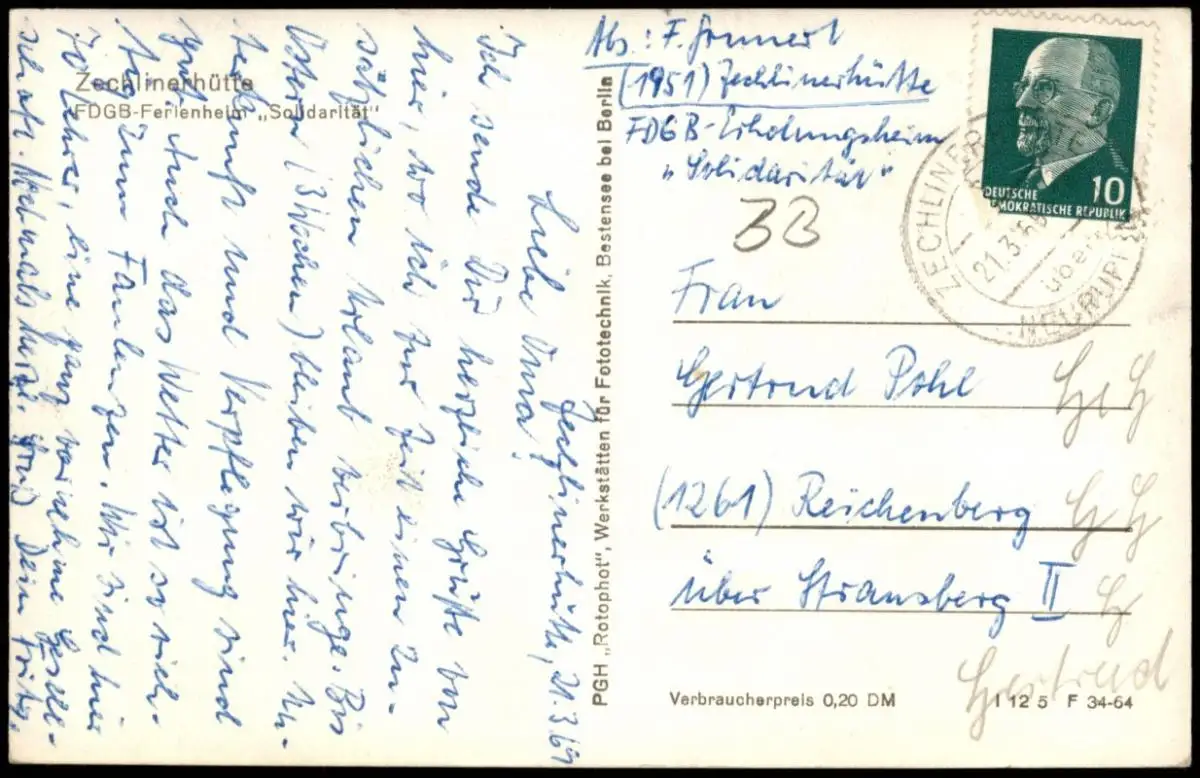 Zechlinerhütte
FDGB-Ferienheim „Solidarität"
Zechlinerhütte, 21.3.69
Liebe Oma!
Ich sende Dir herzliche Grüße von
hier, wo ich zur Zeit einen zu-
sätzlichen Urlaub verbringe. Bis
Ostern (3 Wochen) bleiben wir hier. Un-
terkunft und Verpflegung sind
gut. Auch das Wetter ist so rich-
tig zum Faulenzen. Wir sind hier
70 Lehrer, eine ganz vornehme Gesell-
schaft. Nochmals herzl. Gruß Dein Fritz.
PGH „Rotophot", Werkstätten für Fototechnik, Bestensee bei Berlin
Abs.: F. Gonnert
(1951) Zechlinerhütte
FDGB-Erholungsheim
„Solidarität"
DEUTSCHE
DEMOKRATISCHE REPUBLIK
10
ZECHLINERHÜTTE
21.3.69
über
NEURUPPIN
BB
Frau
Gertrud Pohl
(1261) Reichenberg
über Strausberg II
Gertrud
Verbraucherpreis 0,20 DM
I 12 5 F 34-64